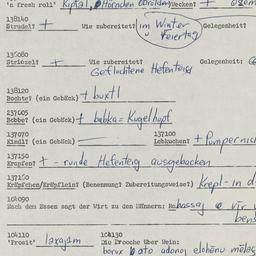 'n fresh roll' Kiptal, Hörnden Weckent +
138140
Strudel? + Wie zubereitet? im Winter Gelegenheit?
Feiertag
136080
Striezel? + Wie zubereitet? Gelegenheit:
Geflochtene Hefenteig
138120
Buchte? (ein Gebäck) + buxtl
137005
Bobbe? (ein Gebäck) + babka = Kugelhupf
137070 137100
Kindl? (ein Gebäck) Lebkuchen? + Pumpernic
137150
Krapfen? + - runde Hefenteig ausgebacken
137160
Kräpfchen/Kräpflein? (Benennung? Zubereitungsweise?) Krepl - in d
104090
Nach dem Essen sagt der Wirt zu den Männern: Rabassaj vir
bens
104110 104130
'Prosit' laxajim Die Brooche über Wein:
borux ato adonoj elohenu melex